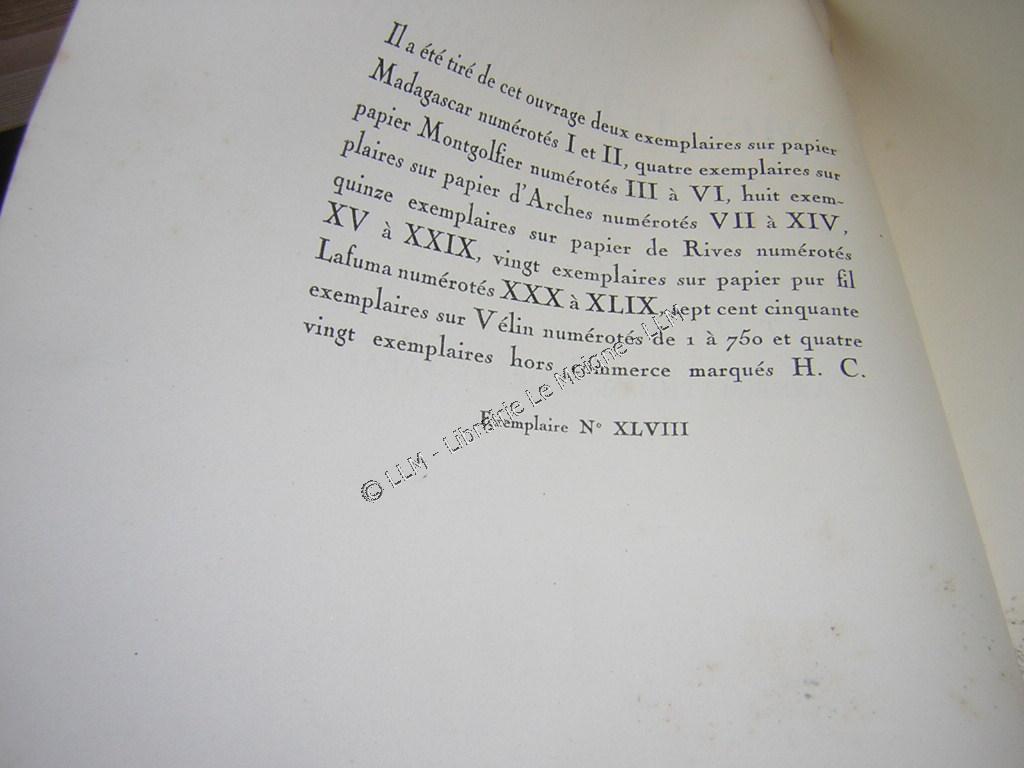 Il a été tiré de cet ouvrage deux exemplaires sur papier
Madagascar numérotés I et II, quatre exemplaires sur
papier Montgolfier numérotés III à VI, huit exem-
plaires sur papier d'Arches numérotés VII à XIV,
quinze exemplaires sur papier de Rives numérotés
XV à XXIX, vingt exemplaires sur papier pur fil
Lafuma numérotés XXX à XLIX, sept cent cinquante
exemplaires sur Vélin numérotés de 1 à 750 et quatre
vingt exemplaires hors commerce marqués H. C.
Exemplaire N° XLVIII
© LLM - Librairie Le Moigne - LLM